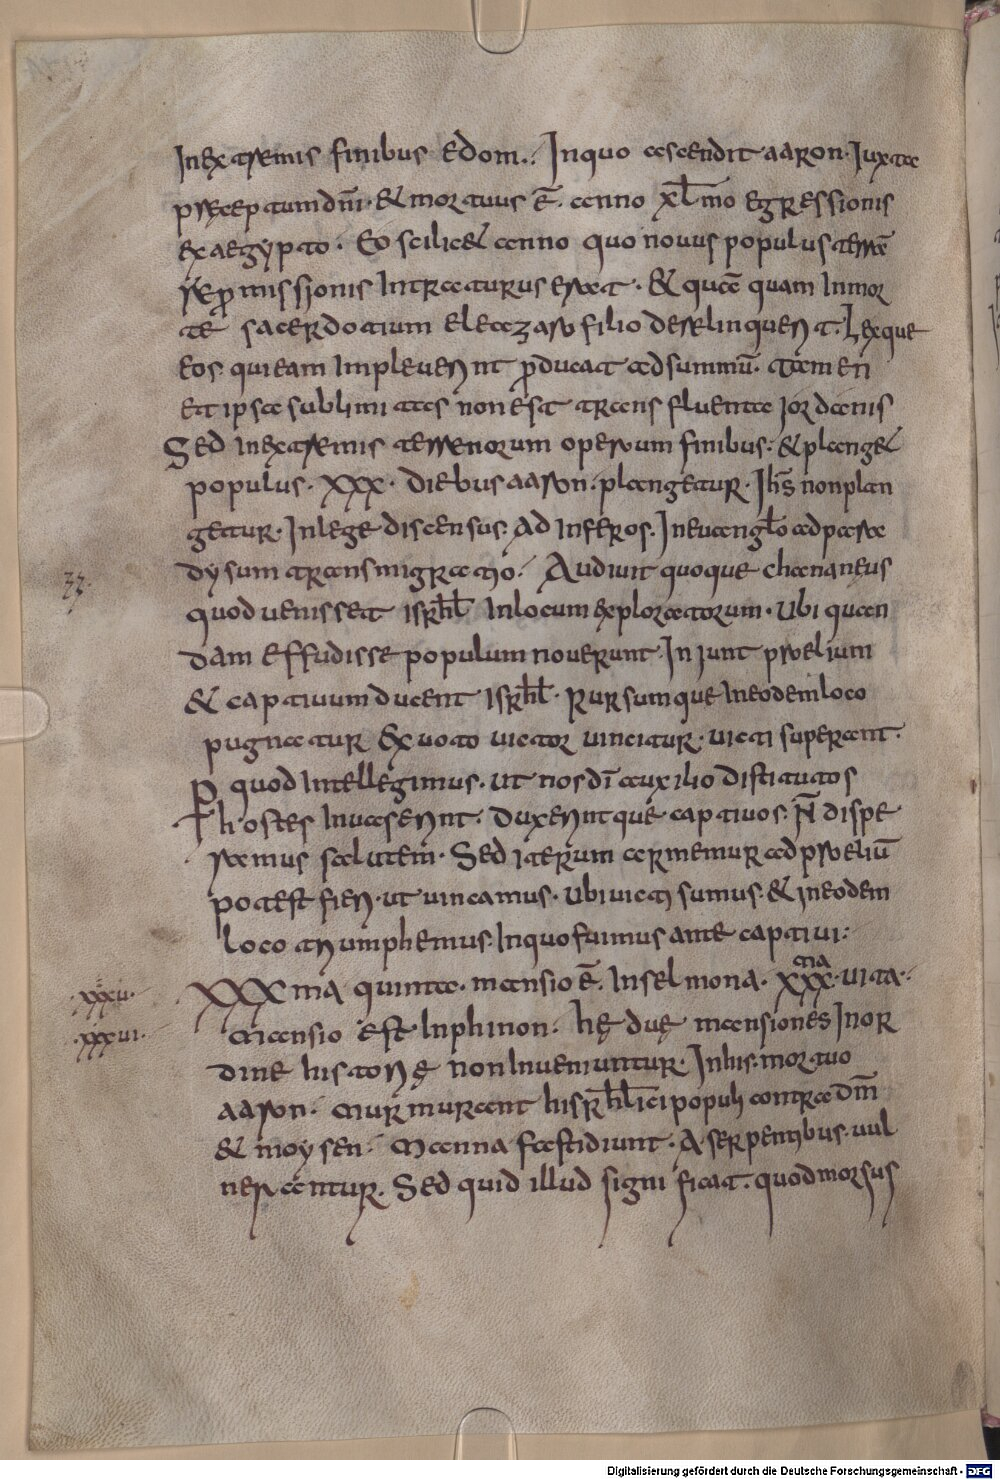 In extremis finibus edom. In quo ascendit aaron. Iuxta
preceptum dn̄i. & mortuus ē. anno xl̄mo egressionis
ex aegypto. Eo scilic& anno quo novus populus terrā
repromissionis intraturus erat. & quā quam in mor
te sacerdotium eleazaro filio derelinquerit. Lexque
eos qui eam impleverint producat ad summū. tamen
et ipsa sublimitas non est trans fluenta iordanis
Sed in extremis terrenorum operum finibus. & plang&
populus. xxx. diebus aaron. plangetur. Ih̄s non plan
getur. In lege discensus. Ad inferos. In evangl̄o ad para
dysum transmigratio. Audivit quoque chananeus
33.
quod venisset isrl̄ In locum exploratorum. ubi quon
dam effudisse populum noverunt. Iniunt proelium
& captivum ducent isrl̄. Rursumque in eodem loco
pugnatur Ex voto victor vincitur. victi superant.
P quod intellegimus. ut nos dī auxilio distitutos
hostes invaserint. Duxerintque captivos. N̄ dispe
remus salutem. Sed iterum armemur ad proeliū
potest fieri. ut vincamus. ubi victi sumus. & in eodem
loco triumphemus. In quo fuimus ante captivi:
XXXma quinta. mansio ē. In selmona. xxxma. vita.
.xxxv.
mansio est in phinon. hę duę mansiones In or
.xxxvi.
dine historię non inveniuntur. In his. mortuo
aaron. murmurant hisrl̄ici populi contra dn̄m
& moysen. manna fastidiunt. A serpentibus. vul
nerantur. Sed quid illud significat. quod morsus
Digitalisierung gefördert durch die Deutsche Forschungsgemeinschaft - DFG